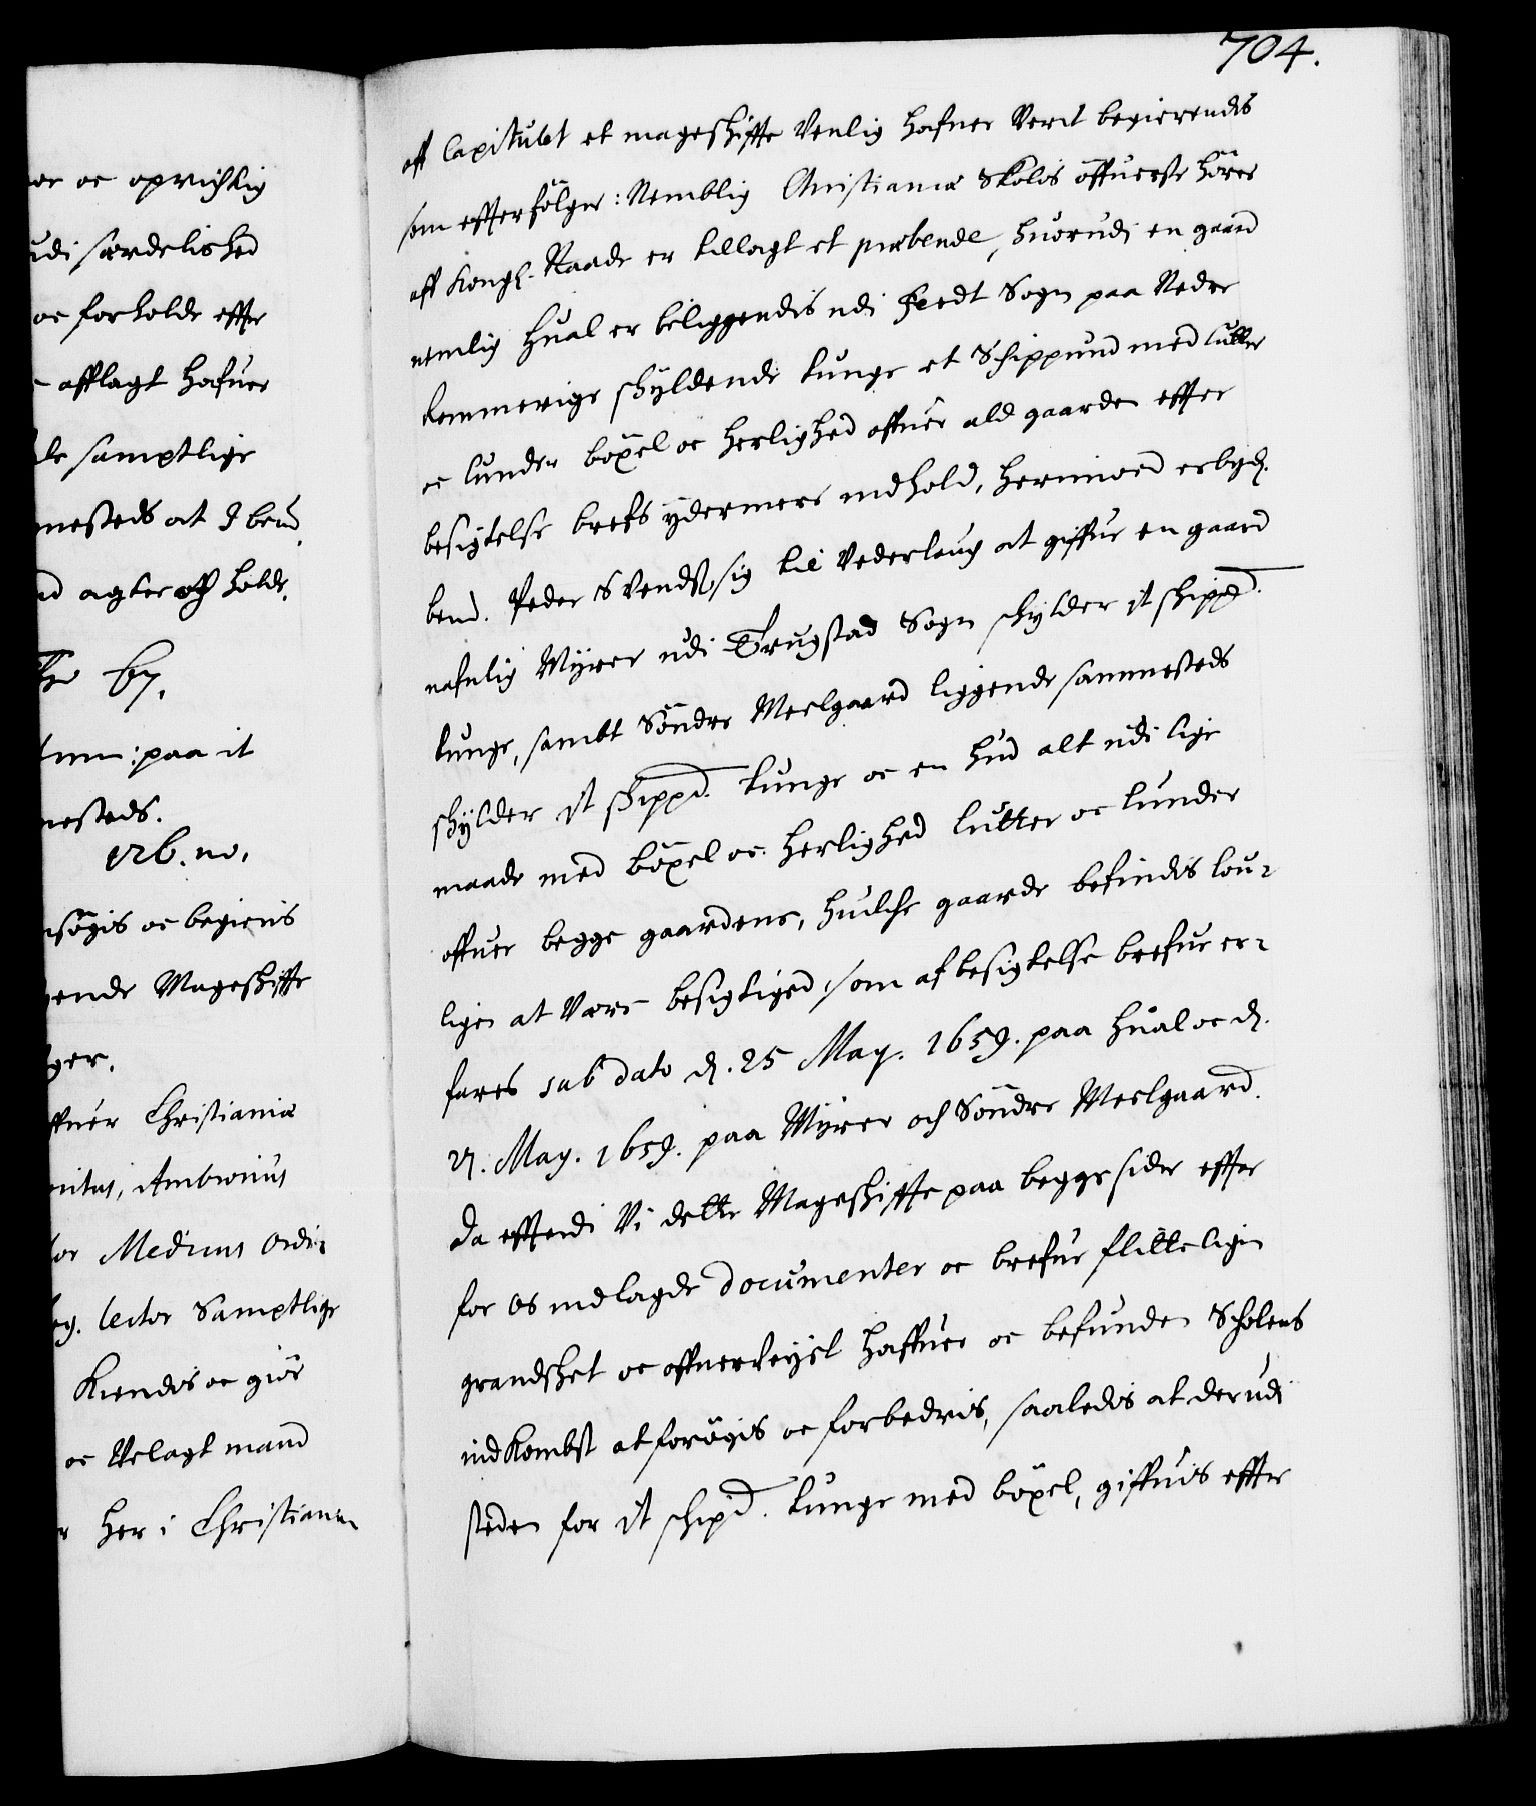 or oc oprichtig
udi særdelished
oc forholde effter
afflagt hafuer
samptlige
mesteds at J bem.
agter och holde.
by.
paa it
mesteds.
vrb. no.
søgis oc begieris
ende Mageskiffte
ger.
ffuer Christianiæ
Ambrosius
Medicus Ordi-
lector Samptlige
Kiendis oc giør
oc Velagt mand
her i Christiania
704.
aff Capitulet et mageskiffte venlig hafuer verit begierendis
som effterfölger: Nemblig Christianiæ Skolis öffuerste hörer
aff Kongl. Naade er tillagt et præbende, huorudi en gaard
nemlig Hual er beliggendis udi Feedt Sogn paa Nedre
Rommerige skyldende tunge et Schippund med lutter
oc lunder böxel oc herlighed offuer ald gaarden effter
besigtelse brefs ydermere indhold, herimoed erbyd.
bem. Peder Svendß. sig til vederlaug at giffue en gaard
nafnlig Myrer udi Trugstad Sogn skylder it skippd.
tunge, sambt Söndre Meelgaard liggende sammesteds
skylder it skippd. tunge oc en hud alt udi lige
maade med böxel oc herlighed lutter oc lunder
offuer begge gaardene, huilche gaarde befindis lou-
ligen at være besigtiged, som af besigtelse brefue er-
fares sub dato d. 25 May. 1659. paa Hual oc d.
27. May. 1659. paa Myrer och Söndre Meelgaard.
Da efftterdi Vi dette Mageskiffte paa begge sider effter
for os indlagde documenter oc brefue flitteligen
grandsket oc offuerveyet haffuer oc befunden Scholens
indKombst at forögis oc forbedris, saaledis at derudi
steden for it schipd. tunge med böxel, giffuis effter